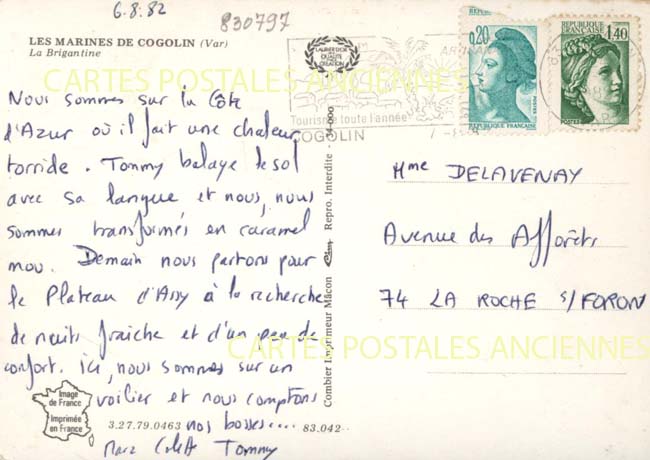 6.8.82
830797
LES MARINES DE COGOLIN (Var)
La Brigantine
Nous sommes sur la Côte
d'Azur où il fait une chaleur
torride. Tommy balaye le sol
avec sa langue et nous, nous
sommes transformés en caramel
mou. Demain nous partons pour
le Plateau d'Assy à la recherche
de nuits fraiche et d'un peu de
confort. Ici, nous sommes sur un
voilier et nous comptons
nos bosses....
Marc Colett Tommy
Image
de France
Imprimée
en France
3.27.79.0463
83.042
Combier Imprimeur Mâcon Repro. Interdite
LAURIER D'OR
QUALITÉ
CRÉATION
Tourisme toute l'année
COGOLIN
0,20
REPUBLIQUE FRANÇAISE
REPUBLIQUE
FRANÇAISE
1,40
POSTES
Mme DELAVENAY
Avenue des Afforêts
74 LA ROCHE s/FORON
CARTES POSTALES ANCIENNES
CARTES POSTALES ANCIENNES